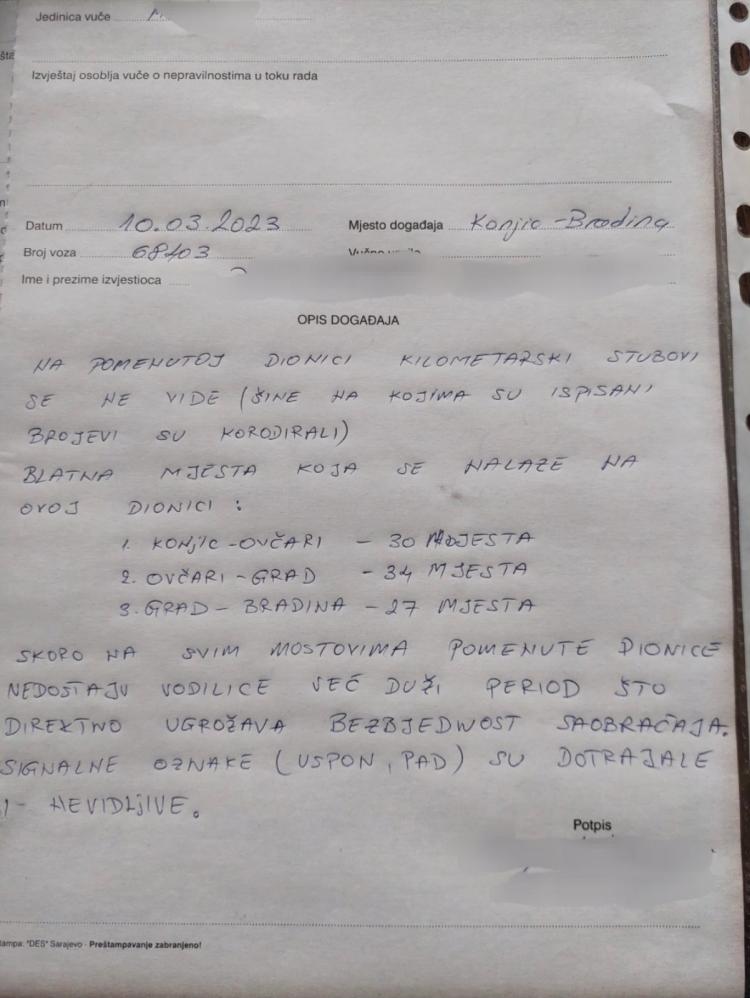 Jedinica vuče
Izvještaj osoblja vuče o nepravilnostima u toku rada
Datum 10.03.2023 Mjesto događaja Konjic - Bradina
Broj voza 68403
Ime i prezime izvjestioca
OPIS DOGAĐAJA
NA POMENUTOJ DIONICI KILOMETARSKI STUBOVI
SE NE VIDE (ŠINE NA KOJIMA SU ISPISANI
BROJEVI SU KORODIRALI)
BLATNA MJESTA KOJA SE NALAZE NA
OVOJ DIONICI :
1. KONJIC - OVČARI - 30 MJESTA
2. OVČARI - GRAD - 34 MJESTA
3. GRAD - BRADINA - 27 MJESTA
SKORO NA SVIM MOSTOVIMA POMENUTE DIONICE
NEDOSTAJU VODILICE VEČ DUŽI PERIOD ŠTO
DIREKTNO UGROŽAVA BEZBJEDNOST SAOBRAČAJA.
SIGNALNE OZNAKE (USPON, PAD) SU DOTRAJALE
I - NEVIDLJIVE.
Potpis
"DES" Sarajevo - Preštampavanje zabranjeno!